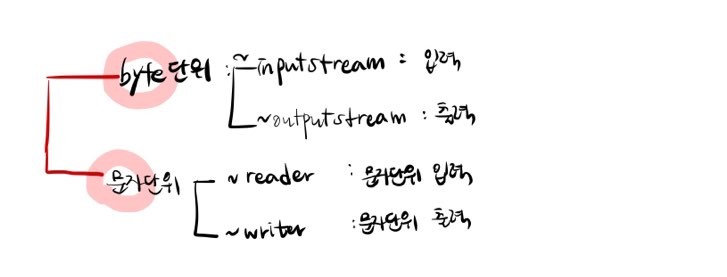 byte단위 : ~inputstream : 입력
~outputstream : 출력
문자단위 ~reader : 문자단위 입력
~writer : 문자단위 출력